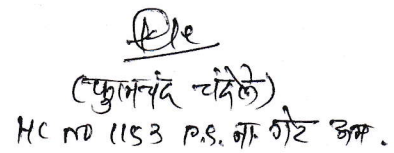 चंदेले)
HC NO 1153 P.S. ना. गेट अम.